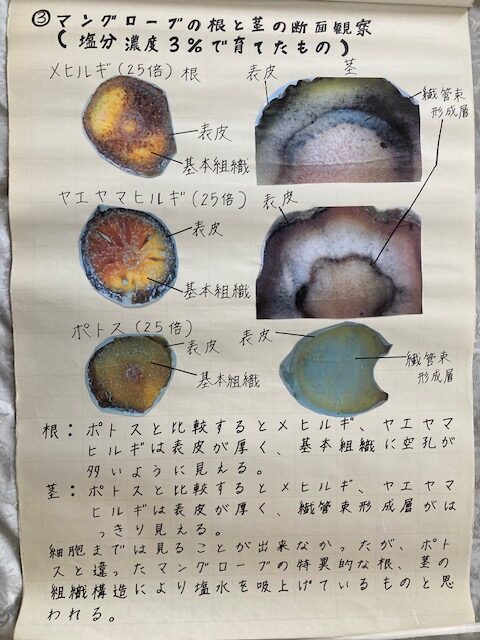 ③マングローブの根と茎の断面観察
(塩分濃度3%で育てたもの)
メヒルギ(25倍) 根 表皮 茎
繊管束
形成層
表皮
基本組織
ヤエヤマヒルギ(25倍) 表皮
表皮
基本組織
ポトス(25倍) 表皮
表皮
基本組織
繊管束
形成層
根:ポトスと比較するとメヒルギ、ヤエヤマ
ヒルギは表皮が厚く、基本組織に空孔が
多いように見える。
茎:ポトスと比較するとメヒルギ、ヤエヤマ
ヒルギは表皮が厚く、繊管束形成層がは
っきり見える。
細胞までは見ることが出来なかったが、ポト
スと違ったマングローブの特異的な根、茎の
組織構造により塩水を吸上げているものと思
われる。